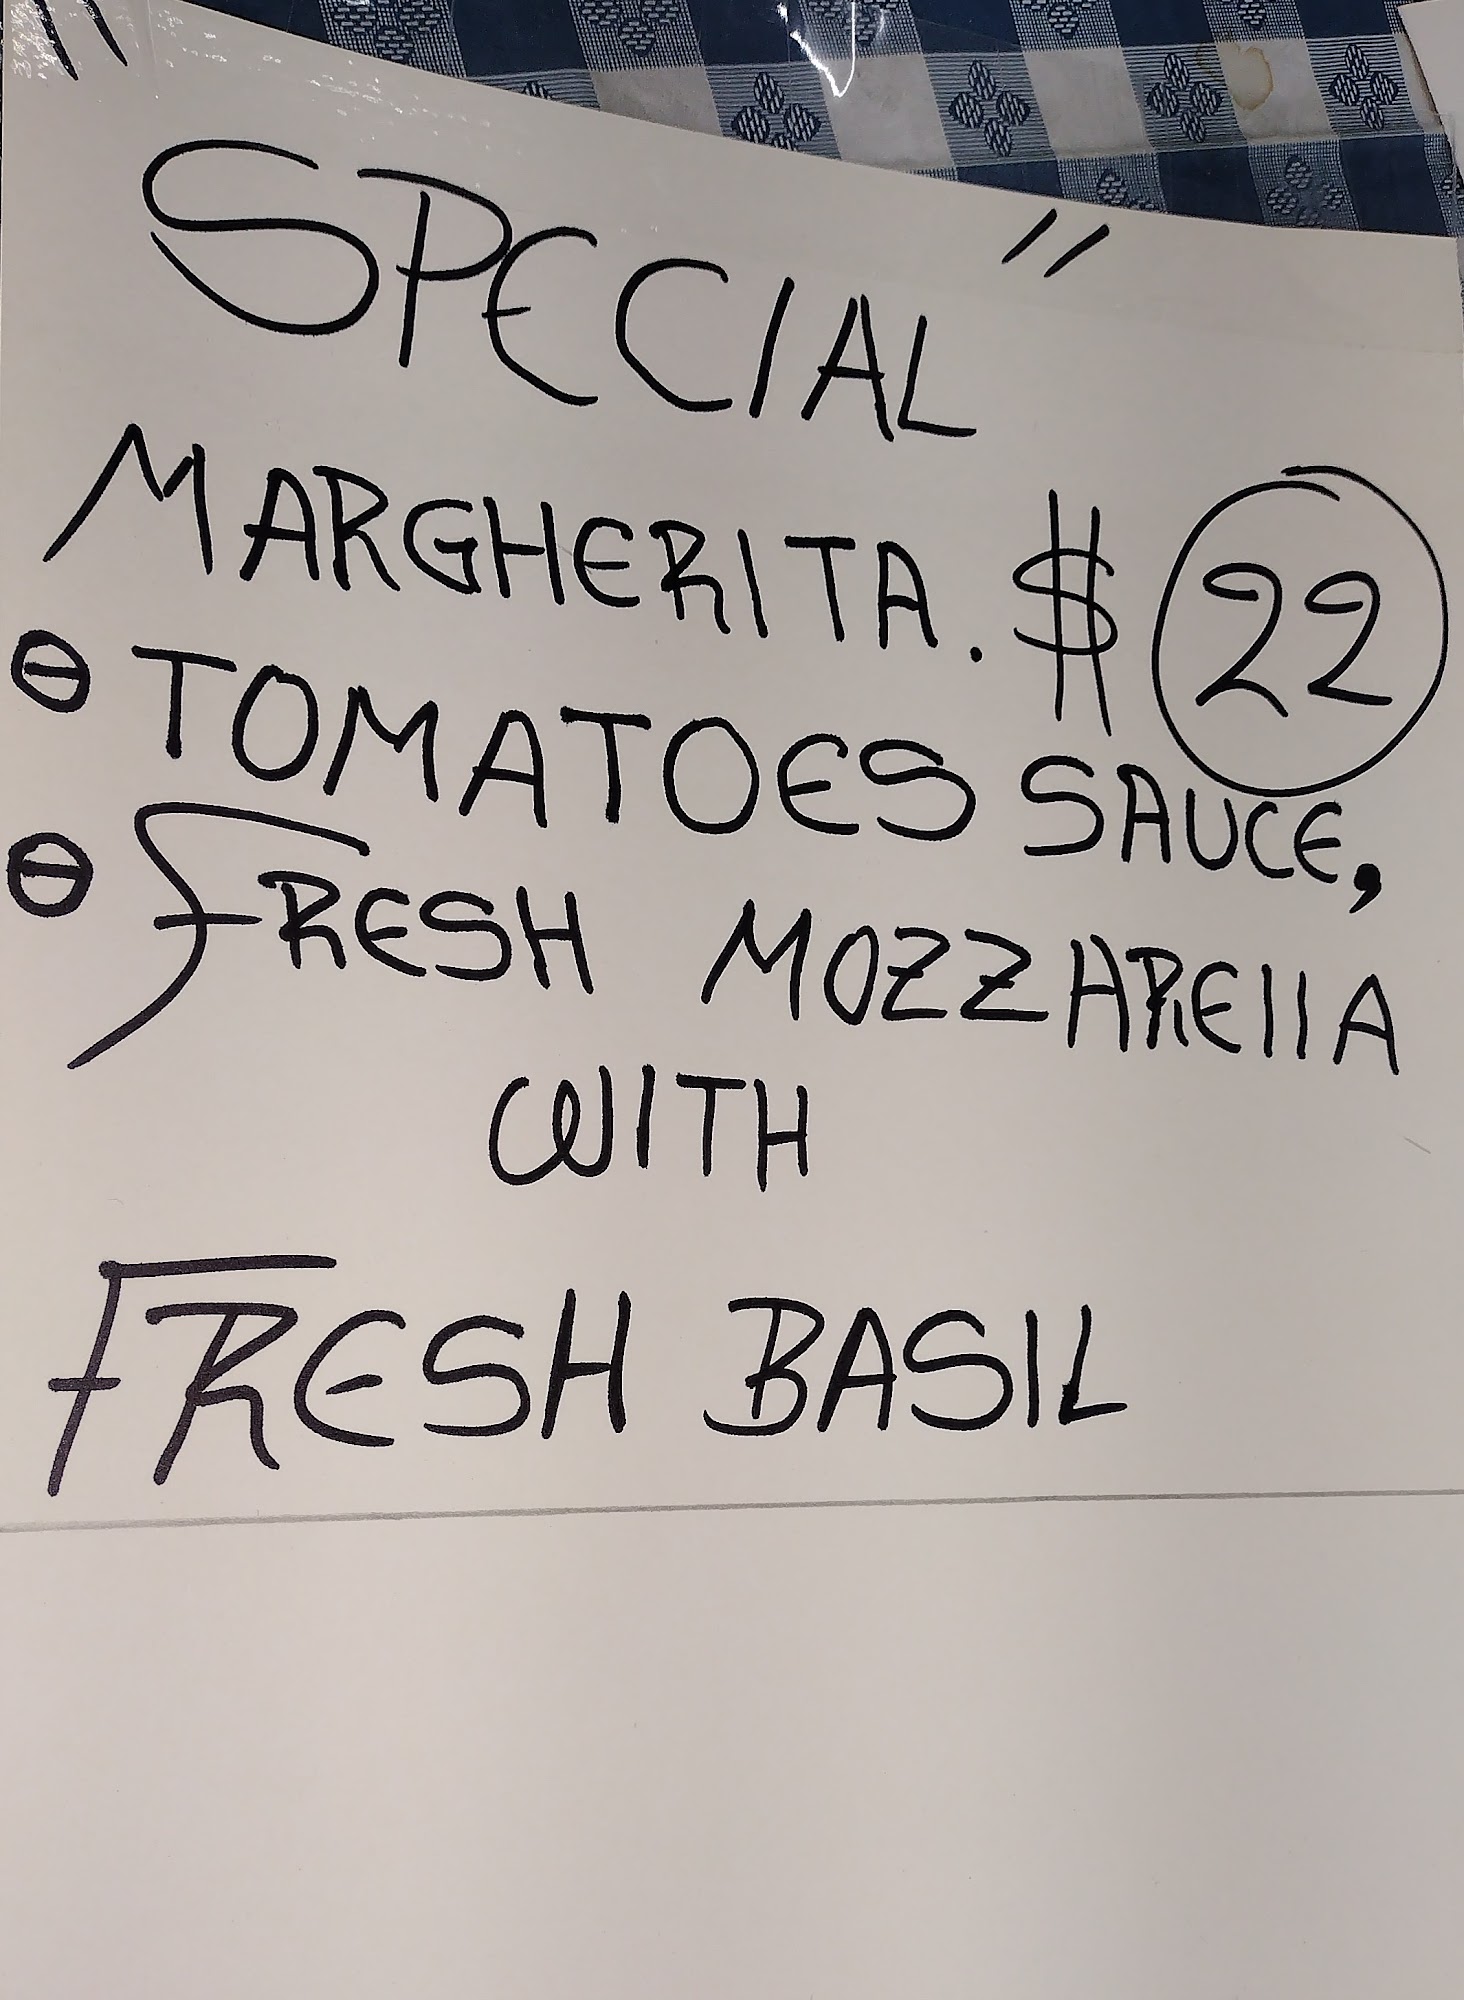 " SPECIAL "
MARGHERITA. $ 22
⊖ TOMATOES SAUCE,
⊖ FRESH MOZZARElla
WITH
FRESH BASIL